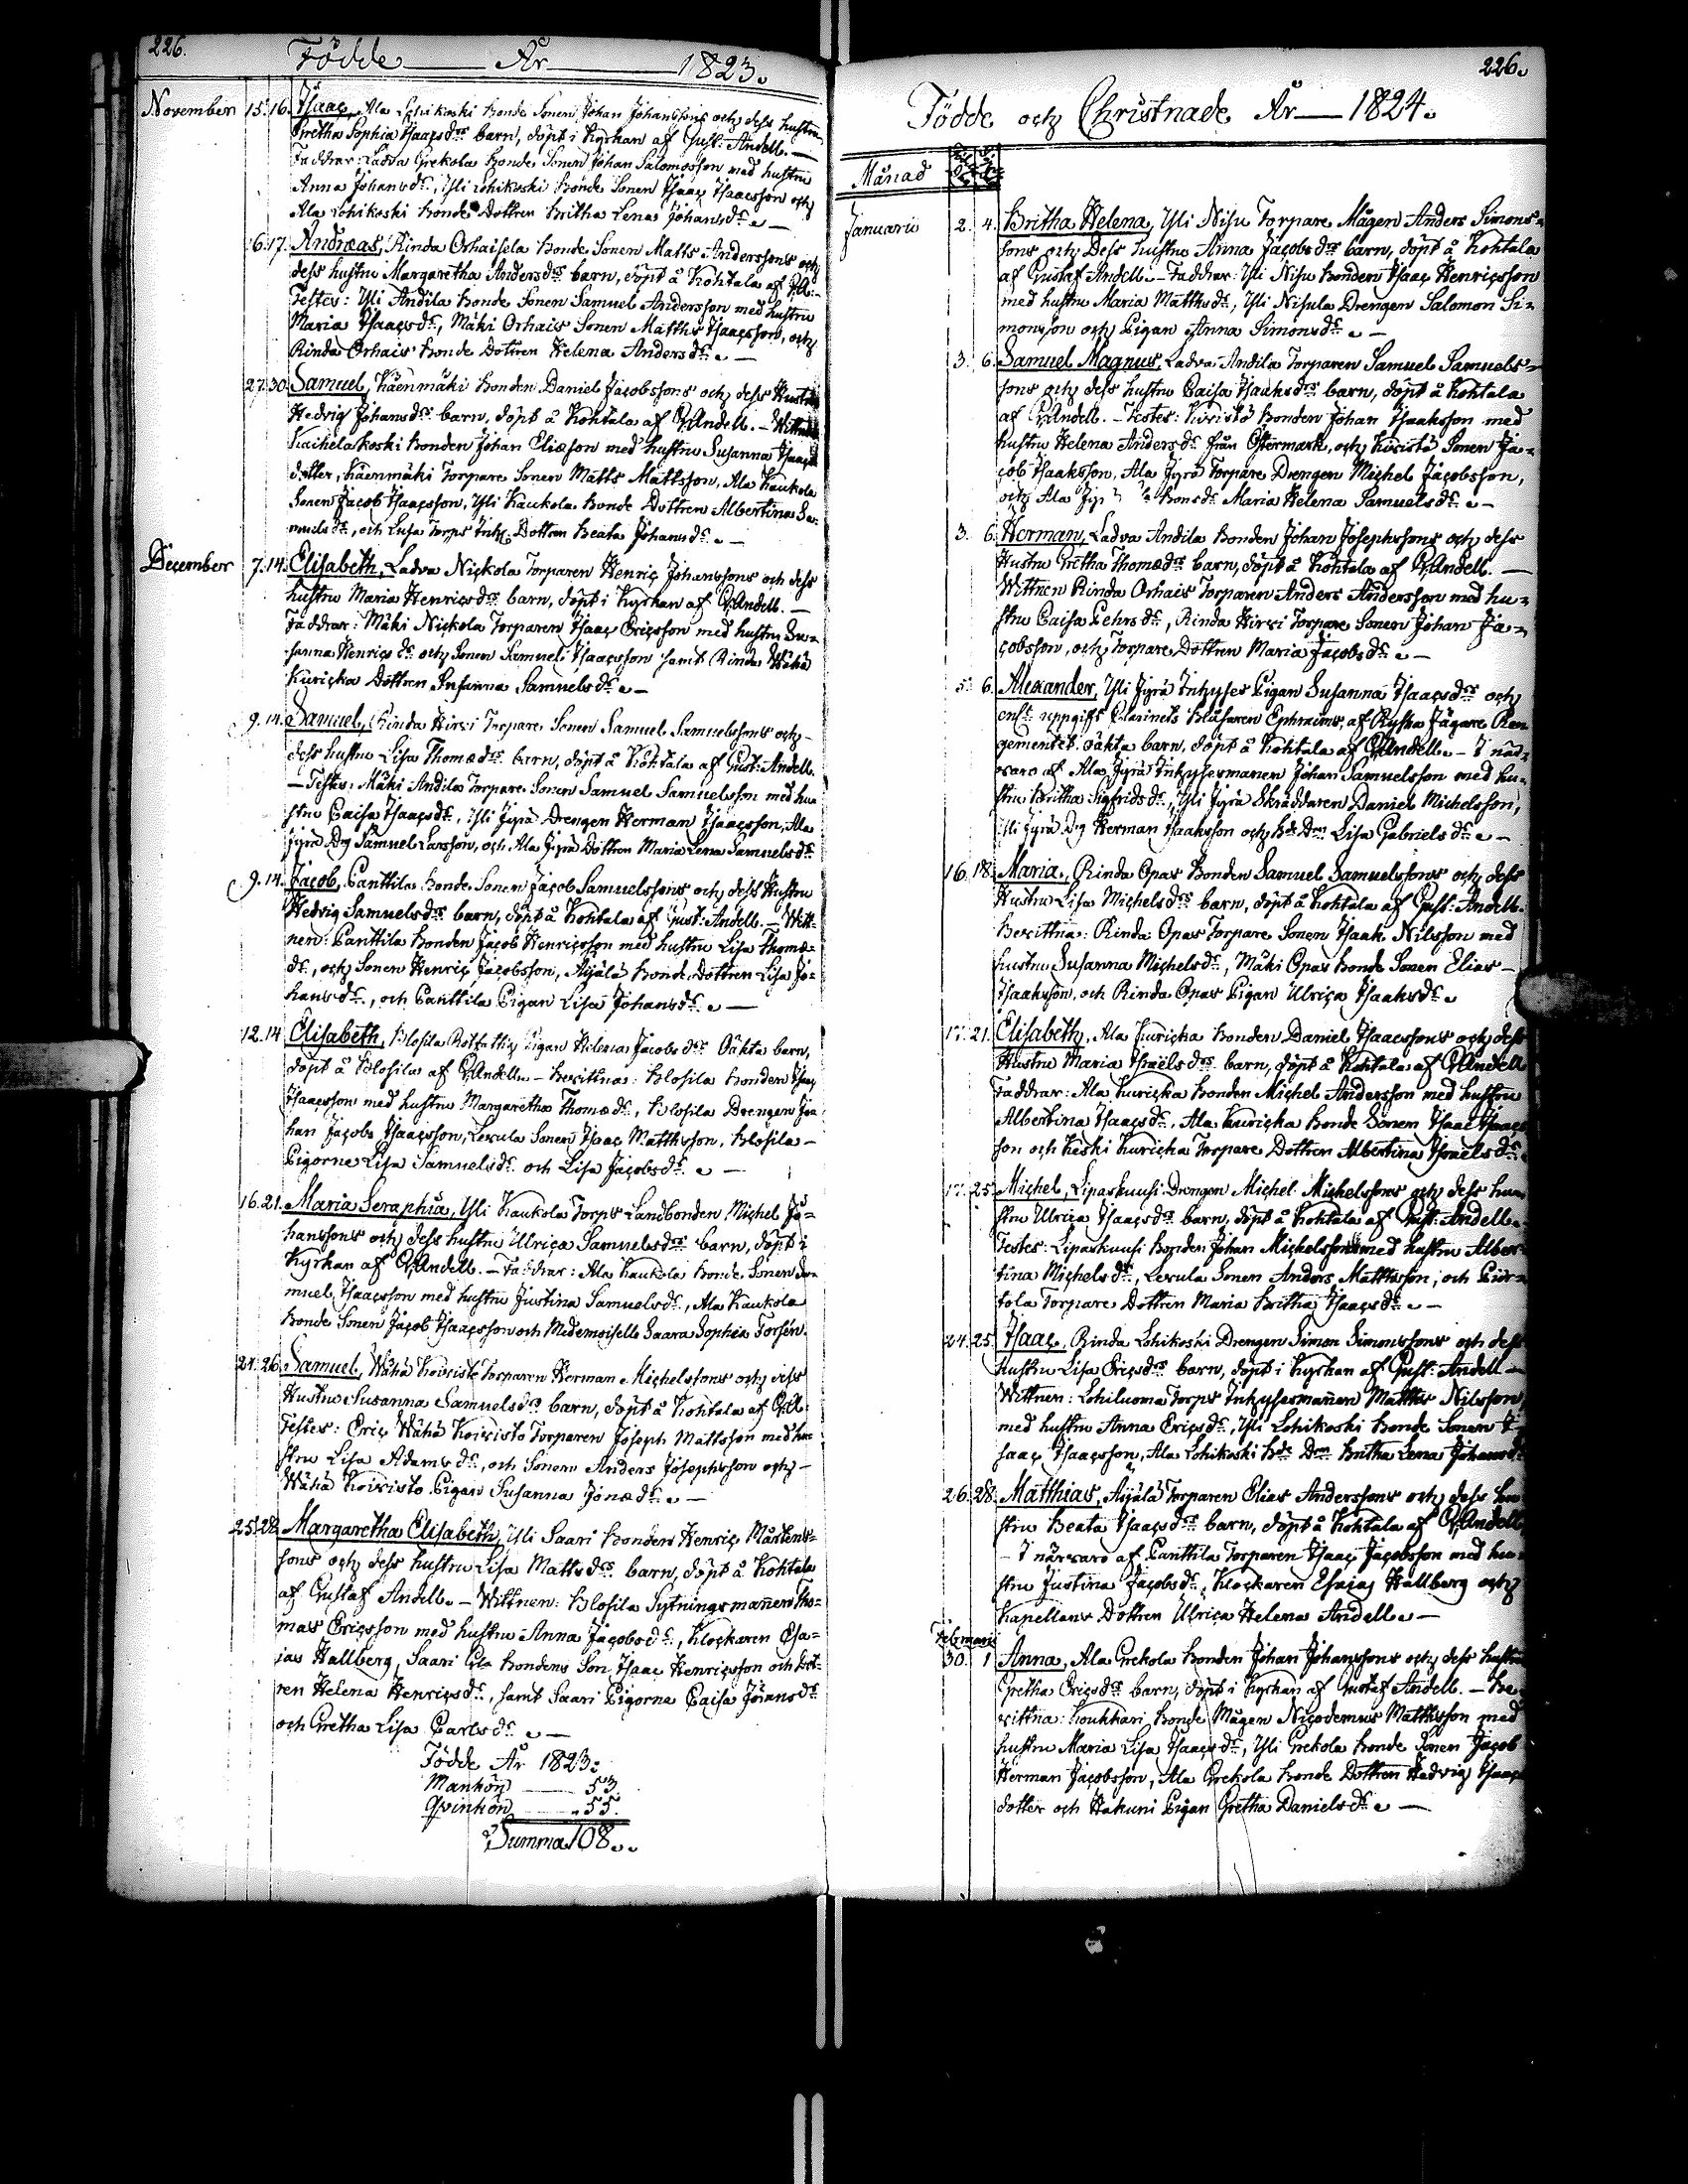 226.
Födde År 1823.
November 15. 16. Isaac, Ala Lohikoski Bonde Sonen Johan Johanssons och dess hustru
Gretha Sophia Isaacsdrs barn, döpt i Kyrkan af Gust: Andell. —
Faddrar: Ladva Grekola Bonde Sonen Johan Salomosson med hustru
Anna Johansdr, Yli Lohikoski Bonde Sonen Isaac Isaacsson och
Ala Lohikoski Bonde Dottren Britha Lena Johansdr. —
16. 17. Andreas, Rinda Orhaisela Bonde Sonen Matts Anderssons och
dess hustru Margaretha Andersdrs barn, döpt å Kohtala af GA:
Testes: Yli Andila Bonde Sonen Samuel Andersson med hustru
Maria Isaacsdr, Mäki Orhais Sonen Matths Isaacsson, och
Rinda Orhais Bonde Dottren Helena Andersdr. —
27. 30. Samuel, Käenmäki Bonden Daniel Jacobssons och dess Hustru
Hedvig Johansdrs barn, döpt å Kohtala af G,Andell. — Wittnen
Kaihelakoski Bonden Johan Eliæson med hustru Susanna Isaacs
dotter, Käenmäki Torpare Sonen Matts Mattsson, Ala Kaukola
Sonen Jacob Isaacsson, Yli Kaukola Bonde Dottren Albertina Sa-
muelsdr, och Lusa Torps Inhs: Dottren Beata Johansdr. —
December 7. 14. Elisabeth, Ladva Nickola Torparen Henric Johanssons och dess
hustru Maria Henricsdrs barn, döpt i Kyrkan af G,Andell. —
Faddrar: Mäki Nickola Torparen Isaac Ericsson med hustru Su-
sanna Henricsdr och Sonen Samuel Isaacsson samt Rinda Wähä
Kuricka Dottren Susanna Samuelsdr. —
9. 14. Samuel, Rinda Hirvi Torpare Sonen Samuel Samuelssons och
dess hustru Lisa Thomædrs barn, döpt å Kohtala af Gust: Andell.
— Testes: Mäki Andila Torpare Sonen Samuel Samuelsson med hu-
stru Caisa Isaacsdr, Yli Jyrä Drengen Herman Isaacsson, Ala
Jyrä Dg Samuel Larsson, och Ala Jyrä Dottren Maria Lena Samuelsdr
9. 14. Jacob, Panttila Bonde Sonen Jacob Samuelssons och dess Hustru
Hedvig Samuelsdrs barn, döpt å Kohtala af Gust: Andell. — Witt-
nen: Panttila Bonden Jacob Henricsson med hustru Lisa Thomæ-
dr, och Sonen Henric Jacobsson, Äijälä Bonde Dottren Lisa Jo-
hansdr, och Panttila Pigan Lisa Johansdr. —
12. 14. Elisabeth, Blosila Pigan Helena Jacobsdrs Oäkta barn,
döpt å Blosila af G,Andell. — Bevittna: Blosila Bonden Isaac
Isaacsson med hustru Margaretha Thomædr, Blosila Drengen Jo-
han Jacobs Isaacsson, Lexula Sonen Isaac Matthsson, Blosila
Pigorne Lisa Samuelsdr och Lisa Jacobsdr. —
16. 21. Maria Seraphia, Yli Kaukola Torps Landbonden Michel Jo-
hanssons och dess hustru Ulrica Samuelsdrs barn, döpt i
Kyrkan af G,Andell. — Faddrar: Ala Kaukola Bonde Sonen Sa-
muel Isaacsson med hustru Justina Samuelsdr, Ala Kaukola
Bonde Sonen Jacob Isaacsson och Mademoiselle Saara Sophia Forsén.
24. 26. Samuel, Wähä Koivisto Torparen Herman Michelssons och dess
Hustru Susanna Samuelsdrs barn, döpt å Kohtala af G,A
Testes: Eric Wähä Koivisto Torparen Joseph Mattsson med hu-
stru Lisa Adamsdr, och Sonen Anders Josephsson och
Wähä Koivisto Pigan Susanna Jonædr. —
25. 28. Margaretha Elisabeth, Yli Saari Bonden Henric Mårtens-
sons och dess hustru Lisa Mattsdrs barn, döpt å Kohtala
af Gustaf Andell. — Wittnen: Blosila Sytningsmannen Tho-
mas Ericsson med hustru Anna Jacobsdr, Klockaren Esa-
ias Hallberg, Saari Bondens Son Isaac Henricsson och Dot-
ren Helena Henricsdr, samt Saari Pigorne Caisa Jöransdr
och Gretha Lisa Carlsdr. —
Födde År 1823:
Mankön — 53
Qvinkön — 55.
Summa 108.
226.
Födde och Christnade År — 1824.
Månad
Januarii 2. 4. Britha Helena, Yli Nisu Torpare Mågen Anders Simons-
sons och Dess hustru Anna Jacobsdrs barn, döpt å Kohtala
af Gustaf Andell. — Faddrar: Yli Nisu Bonden Isaac Henricsson
med hustru Maria Matthsdr, Yli Nisula Drengen Salomon Si-
monsson och Pigan Anna Simonsdr. —
3. 6. Samuel Magnus, Ladva Andila Torparen Samuel Samuels-
sons och dess hustru Caisa Isaaksdrs barn, döpt å Kohtala
af G,Andell. — Testes: Koivistö Bonden Johan Isaaksson med
hustru Helena Andersdr från Östermark, och Koivistö Sonen Ja-
cob Isaaksson, Ala Jyrä Torpare Drengen Michel Jacobsson,
och Ala Jyrä Bonsdr Maria Helena Samuelsdr. —
3. 6. Herman, Ladva Andila Bonden Johan Josephssons och dess
Hustru Gretha Thomædrs barn, döpt å Kohtala af G,Andell. —
Wittnen Rinda Orhais Torparen Anders Andersson med hu-
stru Caisa Pehrsdr, Rinda Hirvi Torpare Sonen Johan Ja-
cobsson, och Torpare Dottren Maria Jacobsdr. —
5. 6. Alexander, Yli Jyrä Inhyses Pigan Susanna Isaacsdrs och
enlt uppgift Clarinets Blåsaren Ephraims, af Ryska Jägare Re-
gementet oäkta barn, döpt å Kohtala af G,Andell. — I när-
varo af Ala Jyrä Inhysesmannen Johan Samuelsson med hu-
stru Britha Sigfridsdr, Yli Jyrä Skräddaren Daniel Michelsson,
Yli Jyrä Dg Herman Isaaksson och Bde Drn Lisa Gabrielsdr. —
16. 18. Maria, Rinda Opas Bonden Samuel Samuelssons och dess
Hustru Lisa Michelsdrs barn, döpt å Kohtala af Gust: Andell.
Bevittna: Rinda Opas Torpare Sonen Isaak Nilsson med
hustru Susanna Michelsdr, Mäki Opas Bonde Sonen Elias
Isaaksson, och Rinda Opas Pigan Ulrica Isaaksdr.
17. 21. Elisabeth, Ala Kuricka Bonden Daniel Isaacssons och dess
Hustru Maria Israelsdrs barn, döpt å Kohtala af G,Andell
Faddrar: Ala Kuricka Bonden Michel Andersson med hustru
Albertina Isaacsdr, Ala Kuricka Bonde Sonen Isaac Isaacs-
son och Keski Kuricka Torpare Dottren Albertina Israelsdr.
17. 25. Michel, Lipaskuusi Drengen Michel Michelssons och dess hu-
stru Ulrica Isaacsdrs barn, döpt å Kohtala af Gust: Andell.
Testes: Lipaskuusi Bonden Johan Michelsson med hustru Alber-
tina Michelsdr, Lexula Sonen Anders Matthsson, och Piir-
tola Torpare Dottren Maria Britha Isaacsdr. —
24. 25. Isaac, Rinda Lohikoski Drengen Simon Simonssons och dess
Hustru Lisa Ericsdrs barn, döpt i Kyrkan af Gust: Andell —
Wittnen: Lohiluoma Torps Inhysesmannen Matths Nilsson,
med hustru Anna Ericsdr, Yli Lohikoski Bonde Sonen I-
saac Isaacsson, Ala Lohikoski Bde Drn Britha Lena Johansdr
26. 28. Matthias, Äijälä Torparen Elias Anderssons och dess hu-
stru Beata Isaacsdrs barn, döpt å Kohtala af G,Andell
— I närvaro af Panttila Torparen Isaac Jacobsson med hu-
stru Justina Jacobsdr, Klockaren Esaias Hallberg och
Kapellans Dottren Ulrica Helena Andell. —
Februarii
30. 1 Anna, Ala Grekola Bonden Johan Johanssons och dess hustru
Gretha Ericsdrs barn, döpt i Kyrkan af Gustaf Andell. — Be-
vittna: Loukkari Bonde Mågen Nicodemus Matthsson med
hustru Maria Lisa Isaacsdr, Yli Grekola Bonde Sonen Jacob
Herman Jacobsson, Ala Grekola Bonde Dottren Hedvig Isaacs
dotter och Hakuni Pigan Gretha Danielsdr. —